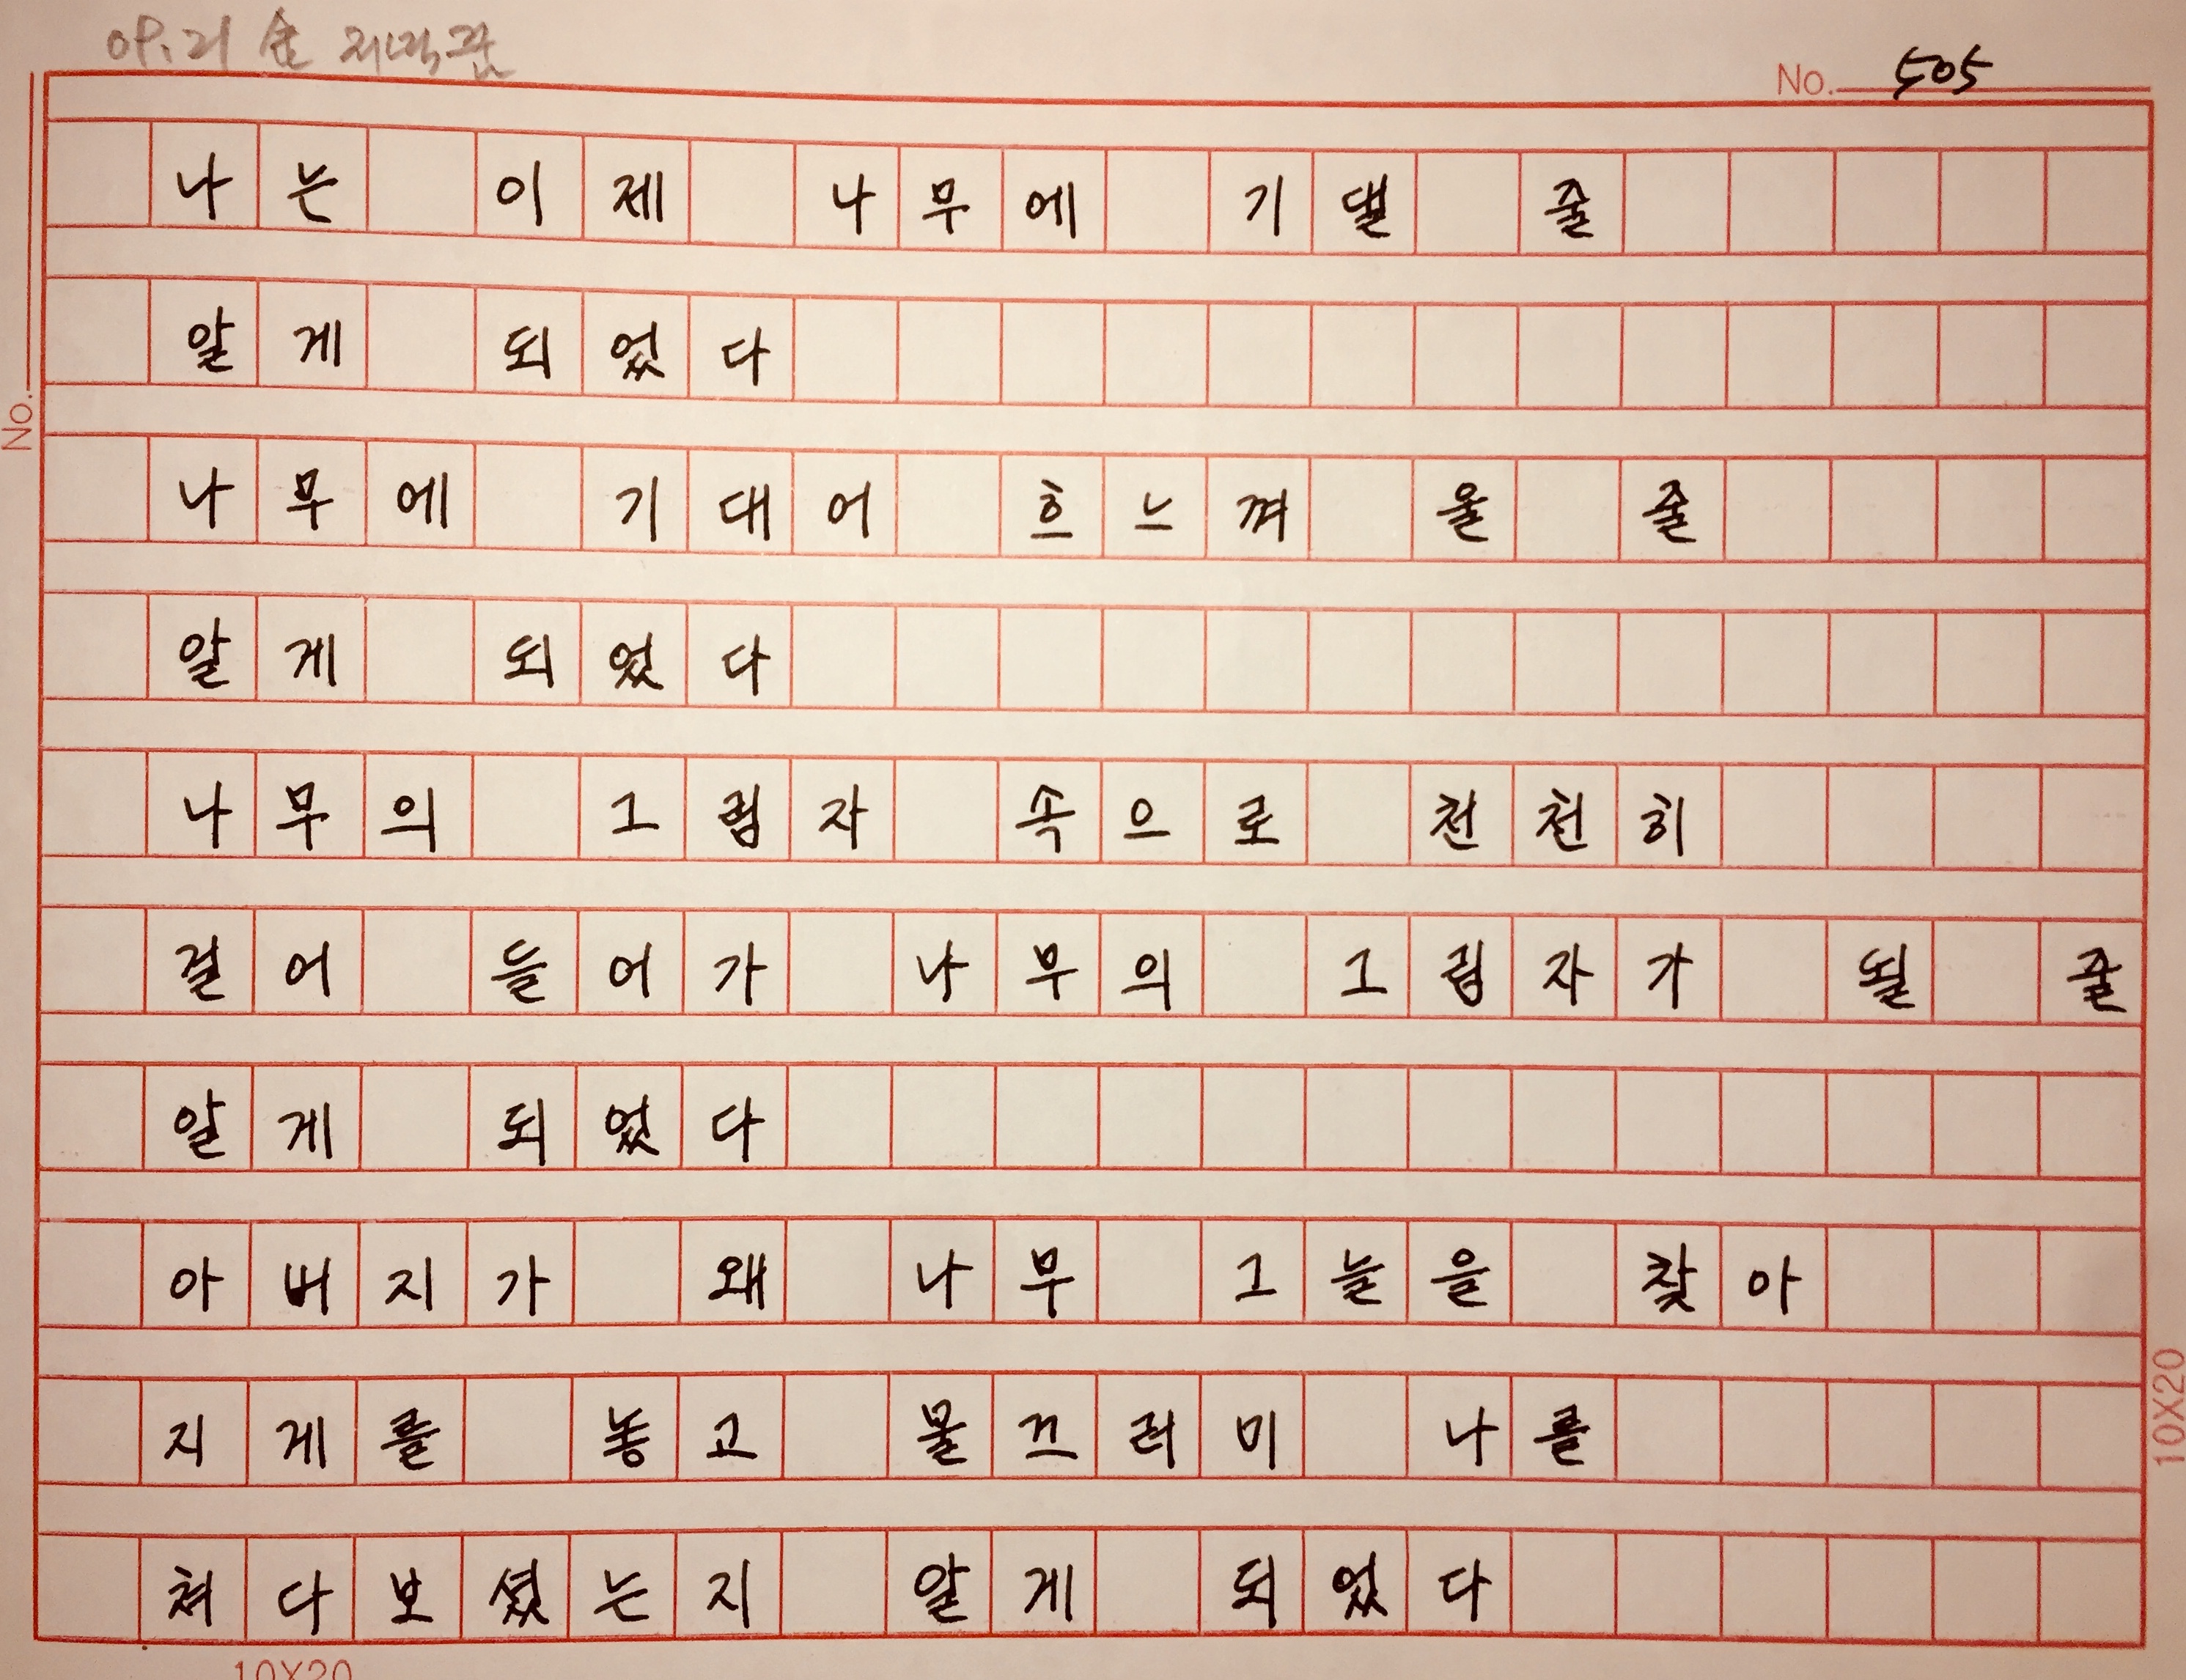 No. 505
나는 이제 나무에 기댈 줄
알게 되었다
나무에 기대어 흐느껴 울 줄
알게 되었다
나무의 그림자 속으로 천천히
걸어 들어가 나무의 그림자가 될 줄
알게 되었다
아버지가 왜 나무 그늘을 찾아
지게를 놓고 물끄러미 나를
쳐다보셨는지 알게 되었다
No.
10X20
10X20